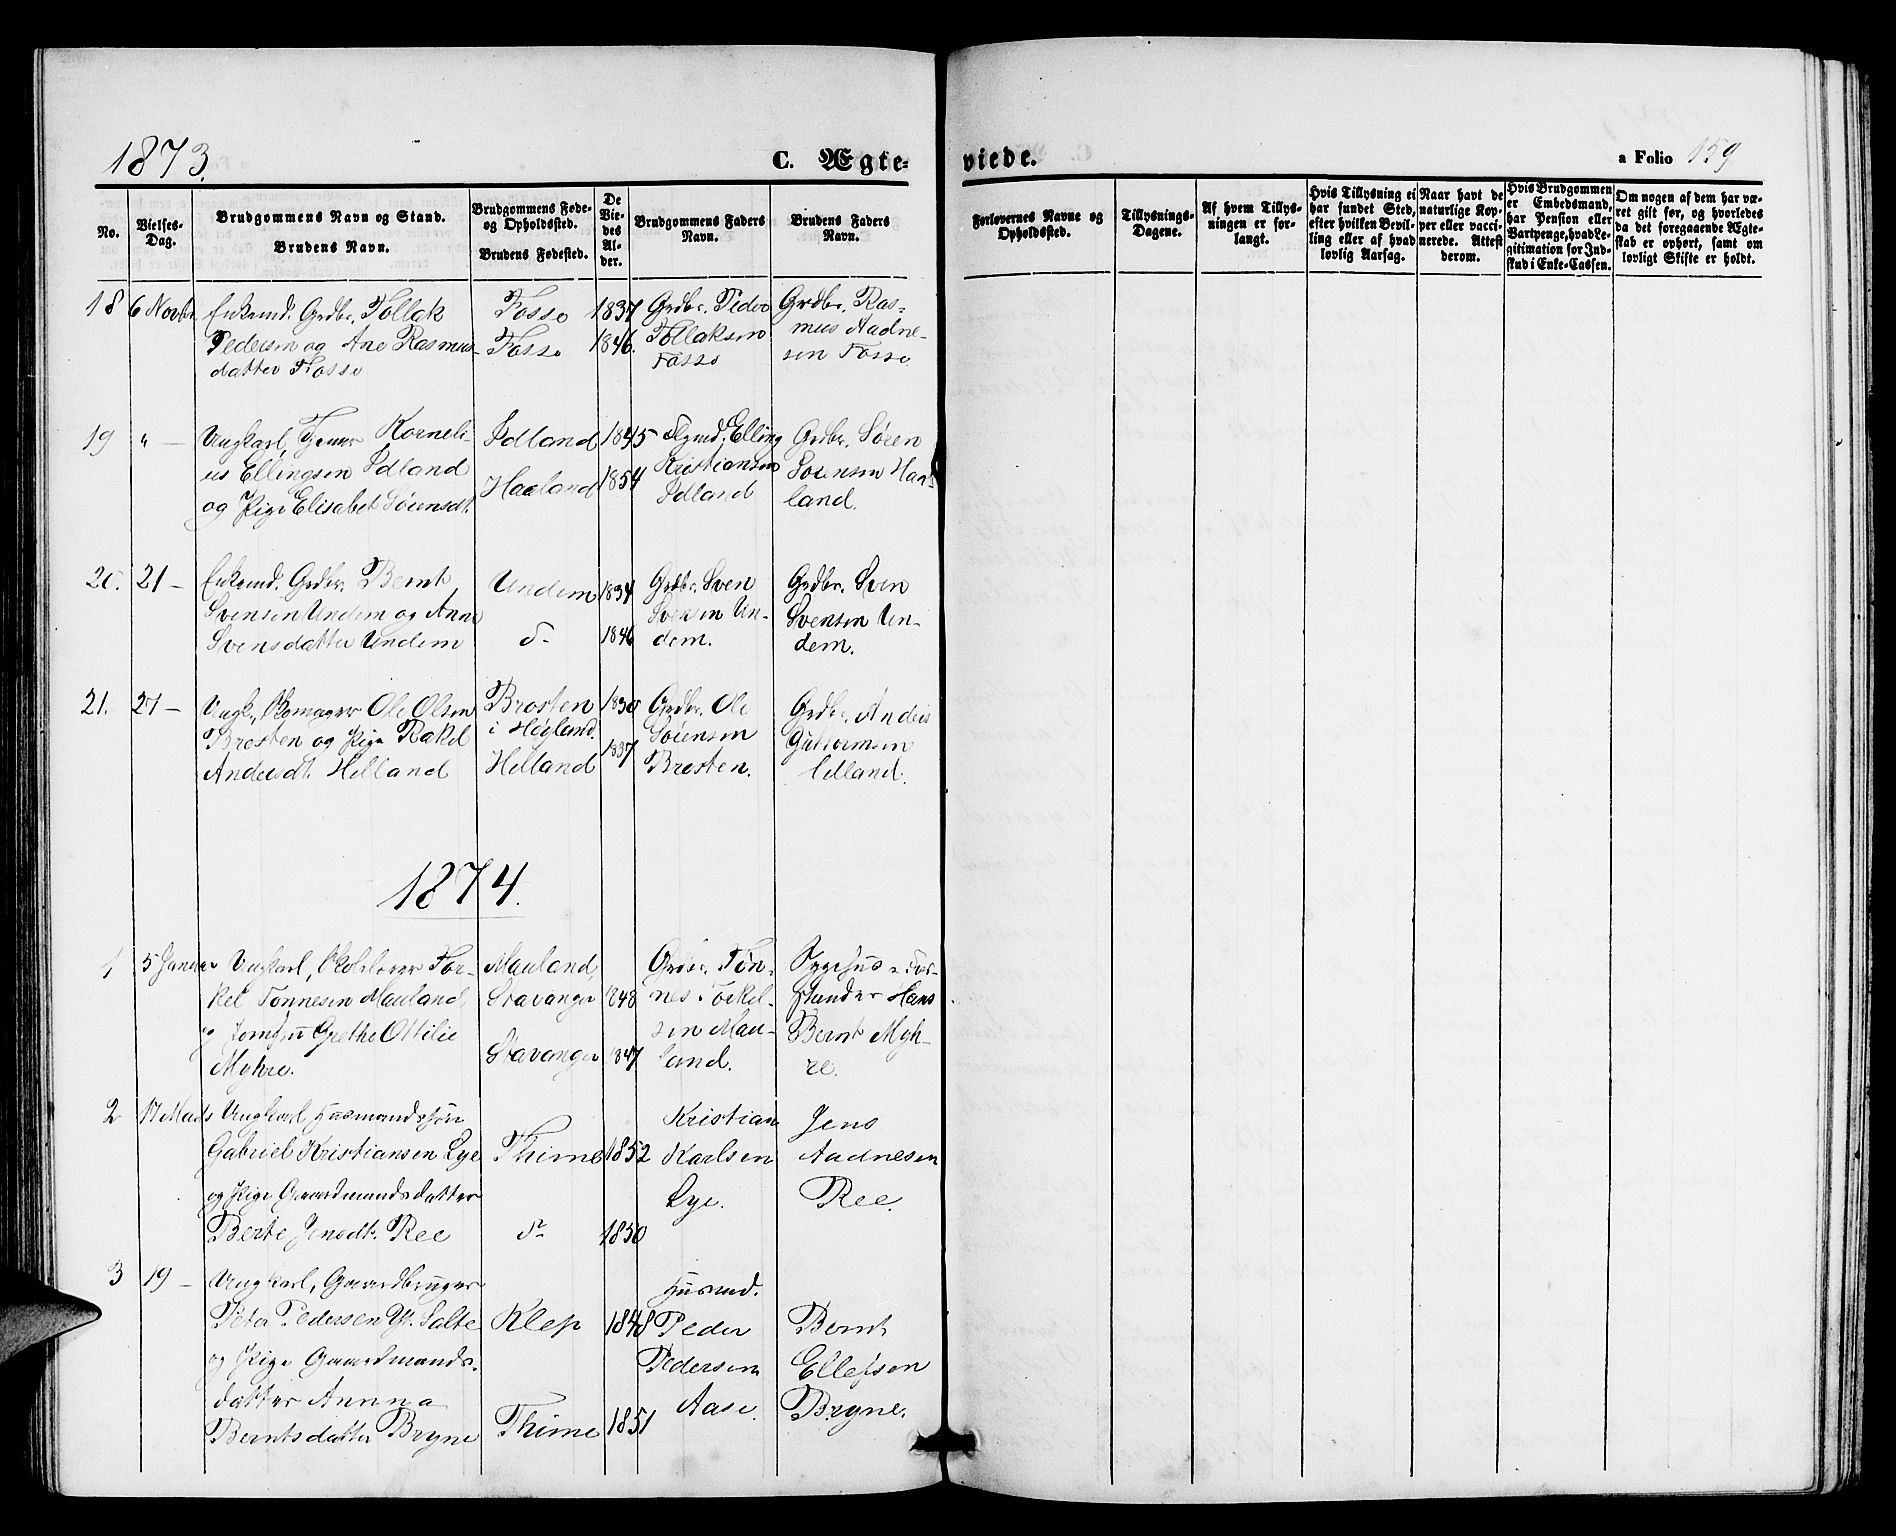 1873.
C. Ægte-
viede.
a Folio 159
No.
Vielses-
Dag.
Brudgommens Navn og Stand.
Brudens Navn.
Brudgommens Føde-
og Opholdssted.
Brudens Fødested.
De
Vie-
des
Al-
der.
Brudgommens Faders
Navn.
Brudens Faders
Navn.
Forlovernes Navne og
Opholdssted.
Tillysnings-
Dagene.
Af hvem Tillys-
ningen er for-
langt.
Hvis Tillysning ei
har fundet Sted,
efter hvilken Bevil-
ling eller af hvad
lovlig Aarsag.
Naar havt de
naturlige Kop-
per eller vacci-
nerede. Attest
derom.
Hvis Brudgommen
er Embedsmand,
har Pension eller
Vartpenge, hvad Le-
gitimation for Ind-
skud i Enke-Cassen.
Om nogen af dem har væ-
ret gift før, og hvorledes
da det foregaaende Ægte-
skab er ophørt, samt om
lovligt Skifte er holdt.
18 6 Novbr. Enkemd. Grdbr. Tollak
Pedersen og Ane Rasmus-
datter Fosse
Fosse 1837
Fosse 1846.
Grdbr. Peder
Tollaksen
Fosse
Grdbr. Ras-
mus Aadne-
sen Fosse.
19 " — Ungkarl, Korneli-
us Ellingsen Idland
og Pige Elisabet Sørensdt.
Idland 1845
Haaland 1854
Elling
Kristiansen
Idland
Grdbr. Søren
Sørensen Haa-
land.
20. 21 — Enkemd. Grdbr. Bernt
Svensen Undem og Anne
Svensdatter Undem
Undem 1834
do 1846
Grdbr. Sven
Svensen Un-
dem.
Grdbr. Sven
Svensen Un-
dem.
21. 27 — Ungk. Skomager Ole Olsen
Brosten og Pige Rakel
Andersdt. Helland
Brosten 1830
i Høgland.
Helland 1837
Grdbr. Ole
Sørensen
Brosten.
Grdbr. Anders
Guttormsen
1874.
1 5 Januar Ungkarl, Skolelærer Tor-
kel Tønnesen Mauland,
og Jomfru Grethe Ottilie
Myhre.
Mauland,
Stavanger 1848
Stavanger 1847
Grdbr. Tøn-
nes Torkel-
sen Mau-
land.
Sygehus-For-
stander Hans
Bernt Myh-
re.
2 17 Marts Ungkarl Husmandssøn
Gabriel Kristiansen Lye
og Pige Gaardmandsdatter
Berte Jensdt. Ree
Thime 1852
do 1850
Kristian
Karlsen
Lye.
Jens
Aadnesen
Ree.
3 19 — Ungkarl, Gaardbruger
Peter Pedersen Yt. Salte
og Pige Gaardmands-
datter Annna
Berntsdatter Bryne
Klep 1848
Thime 1851
Husmd.
Peder
Pedersen
Aase.
Bernt
Ellefsen
Bryne.